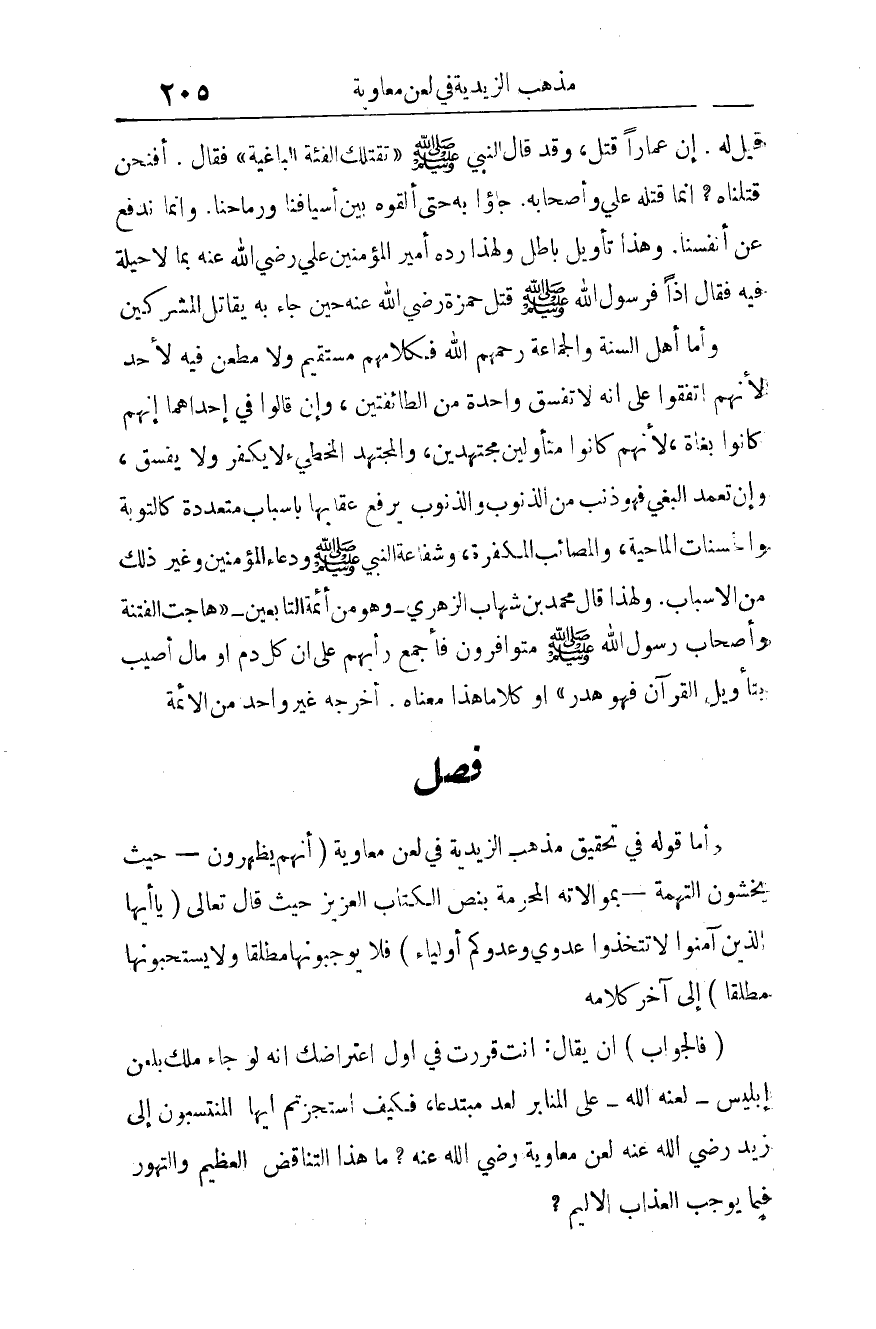 مذهب الزيدية في لعن معاوية ٢٠٥
قيل له . إن عماراً قتل، وقد قال النبي ﷺ «تقتلك الفئة الباغية» فقال . أفنحن
قتلناه ? انما قتله علي وأصحابه. جاؤا به حتى ألقوه بين أسيافنا ورماحنا. وانما ندفع
عن أنفسنا. وهذا تأويل باطل ولهذا رده أمير المؤمنين علي رضي الله عنه بما لا حيلة
فيه فقال اذاً فرسول الله ﷺ قتل حمزة رضي الله عنه حين جاء به يقاتل المشركين
وأما أهل السنة والجماعة رحمهم الله فكلامهم مستقيم ولا مطعن فيه لأحد
لأنهم اتفقوا على انه لا تفسق واحدة من الطائفتين ، وإن قالوا في إحداهما إنهم
كانوا بغاة ، لأنهم كانوا متأولين مجتهدين، والمجتهد المخطيء لا يكفر ولا يفسق ،
وإن تعمد البغي فهو ذنب من الذنوب والذنوب يرفع عقابها باسباب متعددة كالتوبة
والحسنات الماحية، والمصائب المكفرة، وشفاعة النبي ﷺ ودعاء المؤمنين وغير ذلك
من الاسباب. ولهذا قال محمد بن شهاب الزهري ـ وهو من أئمة التابعين ـ «هاجت الفتنة
وأصحاب رسول الله ﷺ متوافرون فأجمع رأيهم على ان كل دم او مال أصيب
بتأويل القرآن فهو هدر» او كلاما هذا معناه . أخرجه غير واحد من الائمة
فصل
وأما قوله في تحقيق مذهب الزيدية في لعن معاوية ( أنهم يظهرون — حيث
يخشون التهمة — بموالاته المحرمة بنص الكتاب العزيز حيث قال تعالى ( ياأيها
الذين آمنوا لا تتخذوا عدوي وعدوكم أولياء ) فلا يوجبونها مطلقا ولا يستحبونها
مطلقا ) إلى آخر كلامه
( فالجواب ) ان يقال: انت قررت في اول اعتراضك انه لو جاء ملك بلعن
إبليس ـ لعنه الله ـ على المنابر لعد مبتدعا، فكيف استجزتم ايها المنتسبون إلى
زيد رضي الله عنه لعن معاوية رضي الله عنه ? ما هذا التناقض العظيم والتهور
فيما يوجب العذاب الاليم ?